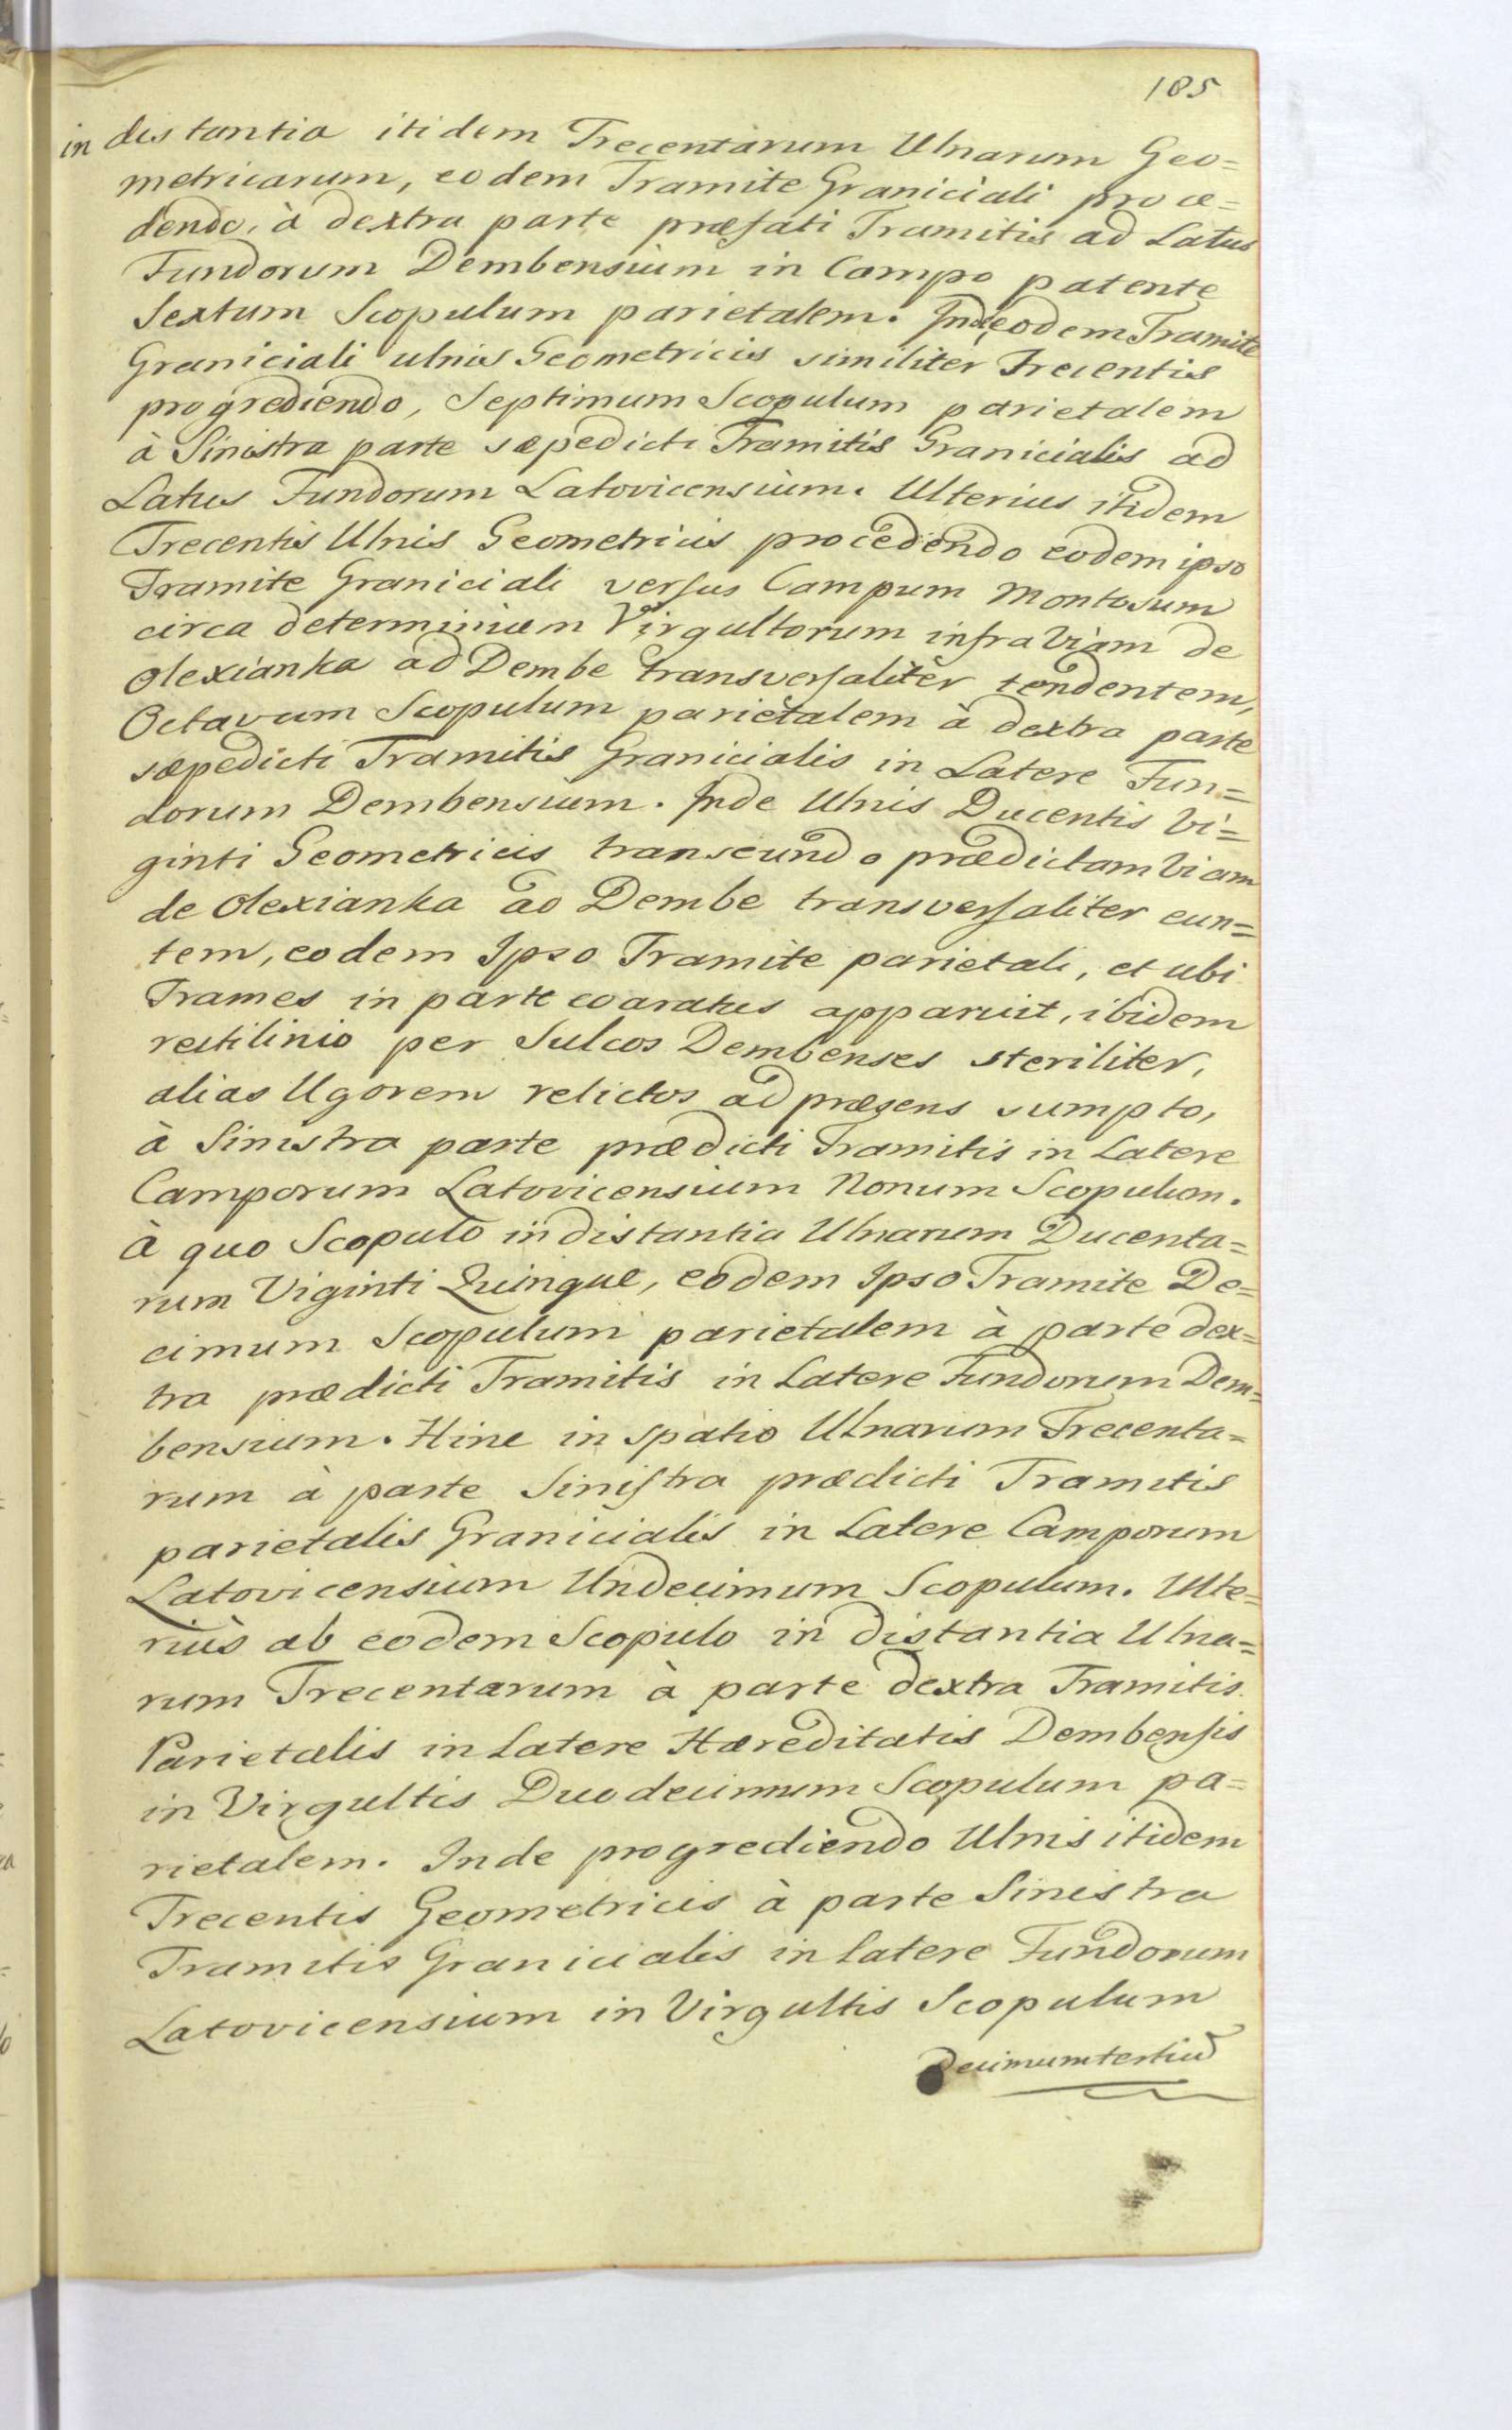 185
in distantia itidem Trecentarum Ulnarum Geo=
metricarum, eodem Tramite Graniciali proce=
dendo, à dextra parte præfati Tramitis ad Latus
Fundorum Dembensium in Campo patente
Sextum Scopulum parietalem. Inde eodem Tramite
Graniciali ulnis Geometricis similiter Trecentis
progrediendo, Septimum Scopulum parietalem
à Sinistra parte sæpedicti Tramitis Granicialis ad
Latus Fundorum Latovicensium. Ulterius itidem
Trecentis Ulnis Geometricis procedendo eodem ipso
Tramite Graniciali versus Campum Montosum
circa determinium Virgultorum infra Viam de
Olexianka ad Dembe transversaliter tendentem,
Octavum Scopulum parietalem à dextra parte
sæpedicti Tramitis Granicialis in Latere Fun=
dorum Dembensium. Inde Ulnis Ducentis Vi=
ginti Geometricis transeundo prædictam Viam
de Olexianka ad Dembe transversaliter eun=
tem, eodem Ipso Tramite parietali, et ubi
Trames in parte coaratus apparuit, ibidem
rectilinio per Sulcos Dembenses steriliter,
alias Ugorem relictos ad præsens sumpto,
à Sinistra parte prædicti Tramitis in Latere
Camporum Latovicensium Nonum Scopulum.
à quo Scopulo in distantia Ulnarum Ducenta=
rum Viginti Quinque, eodem Ipso Tramite De=
cimum Scopulum parietalem à parte dex=
tra prædicti Tramitis in Latere Fundorum Dem=
bensium. Hinc in spatio Ulnarum Trecenta=
rum à parte Sinistra prædicti Tramitis
parietalis Granicialis in Latere Camporum
Latovicensium Undecimum Scopulum. Ulte=
riùs ab eodem Scopulo in distantia Ulna=
rum Trecentarum à parte dextra Tramitis
Parietalis in Latere Hæreditatis Dembensis
in Virgultis Duodecimum Scopulum pa=
rietalem. Inde progrediendo Ulnis itidem
Trecentis Geometricis à parte Sinistra
Tramitis Granicialis in Latere Fundorum
Latovicensium in Virgultis Scopulum
Decimumtertiū